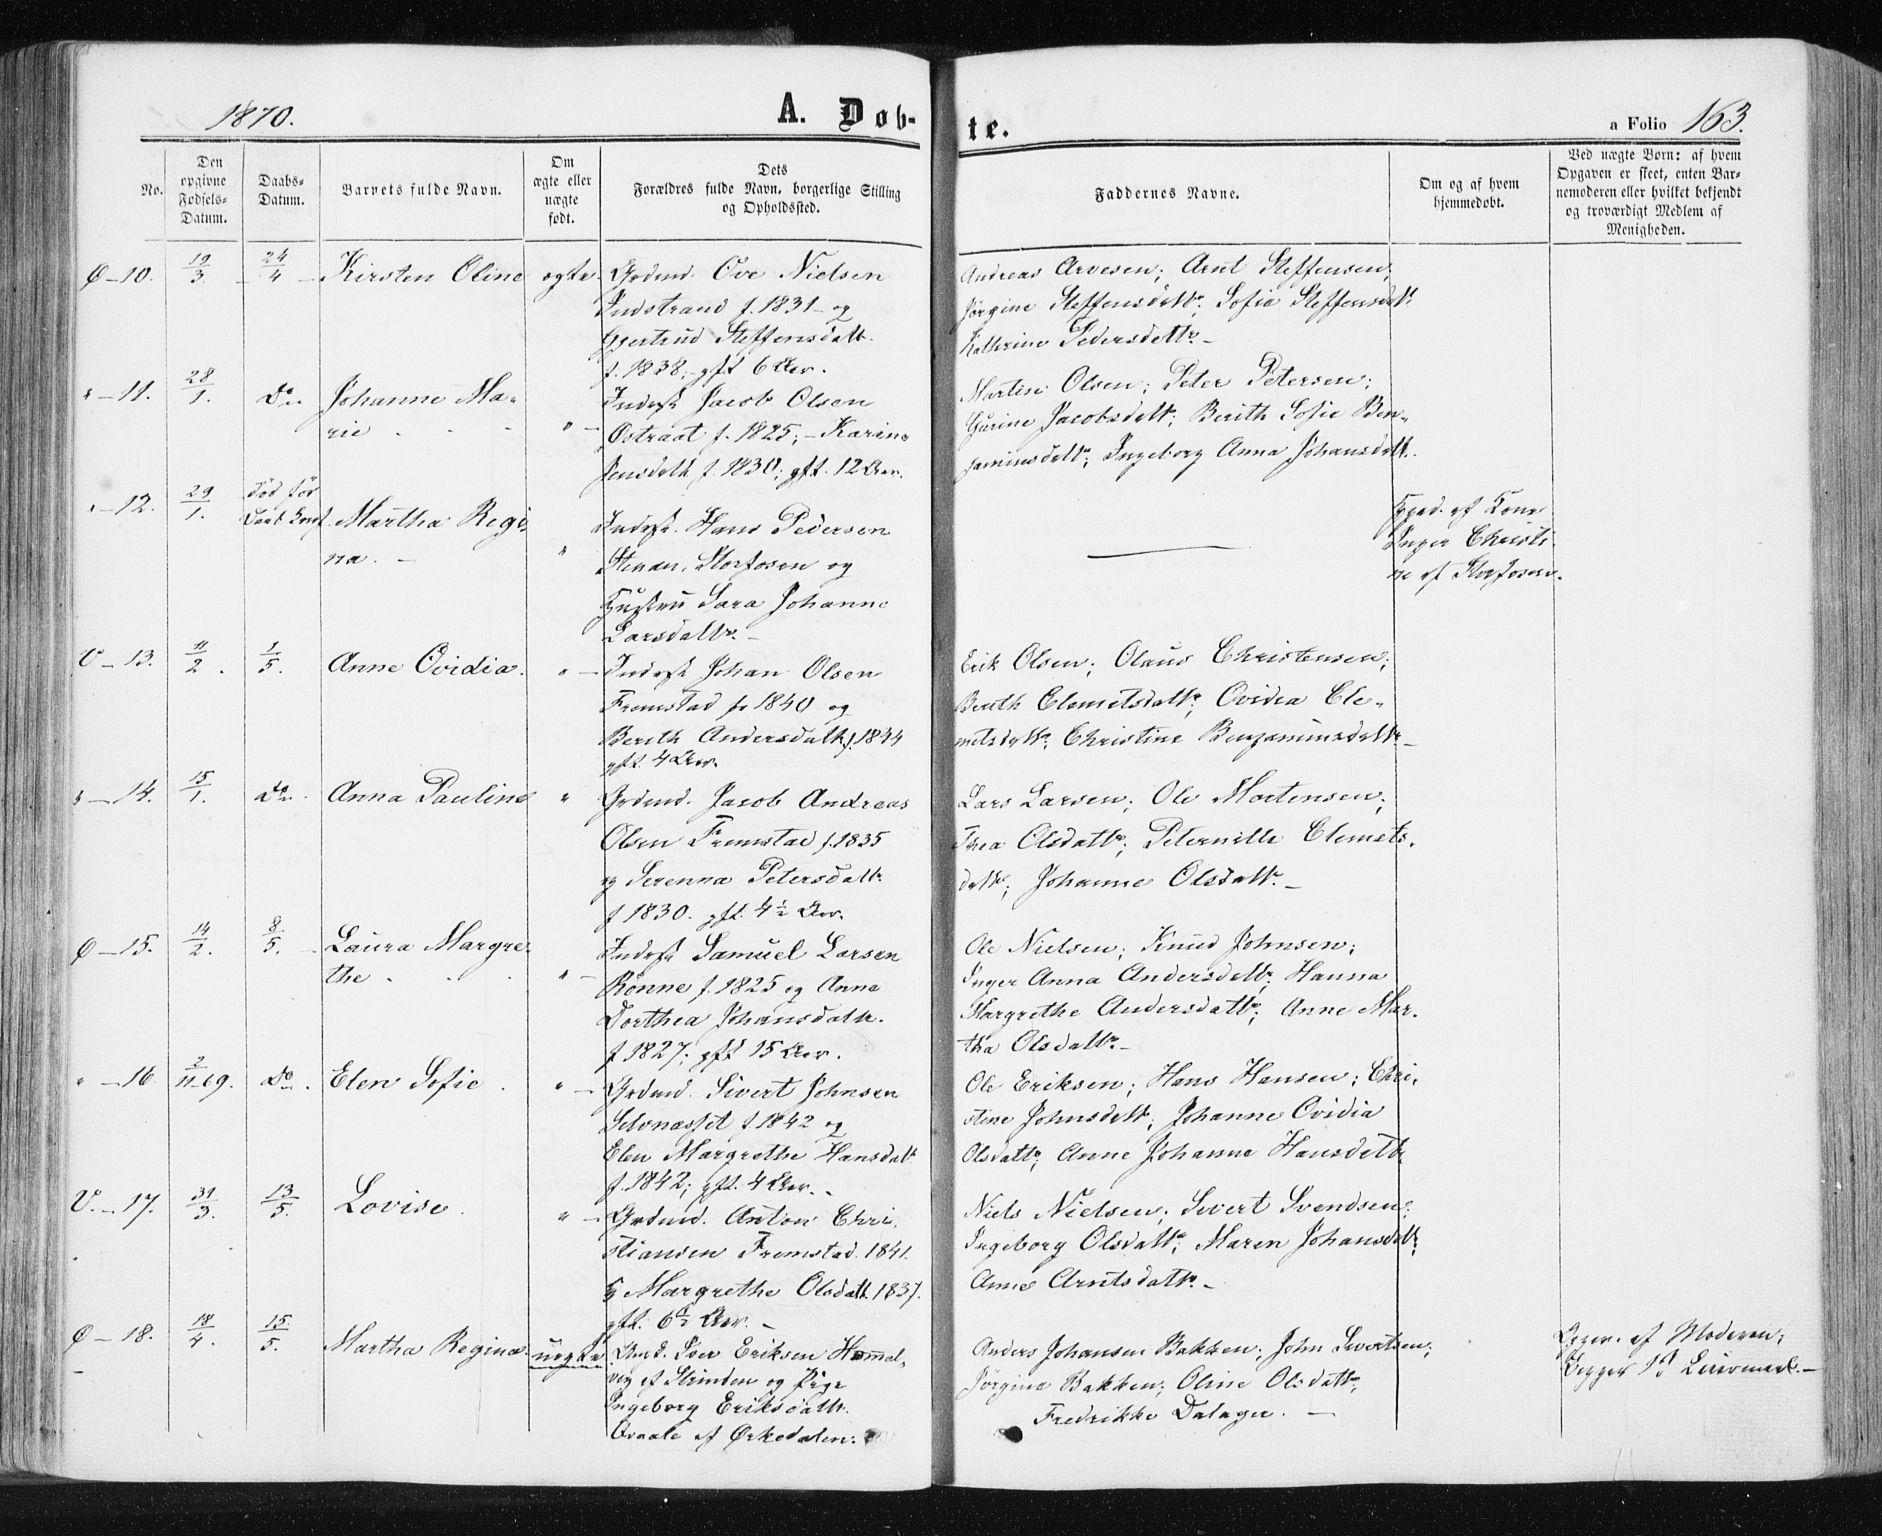 1870.
A. Døb-
te.
a Folio 163.
No.
Den
opgivne
Fødsels-
Datum.
Daabs-
Datum.
Barnets fulde Navn.
Om
ægte eller
uægte
født.
Dets
Forældres fulde Navn, borgerlige Stilling
og Opholdssted.
Faddernes Navne.
Om og af hvem
hjemmedøbt.
Ved uægte Børn: af hvem
Opgaven er skeet, enten Bar-
nemoderen eller hvilket bekjendt
og troværdigt Medlem af
Menigheden.
Ø – 10. 19/3. 24/4 Kirsten Oline ægte. Grdmd. Ove Nielsen
Indstrand f. 1831 – og
Gjertrud Steffensdatt.
f. 1838; gft 6 Aar.
Andreas Arvesen; Arnt Steffensen;
Jørgine Steffensdatt; Sofia Steffensdatt
Kathrine Pedersdattr. –
" – 11. 28/1. Do. Johanne Ma-
rie " – Inderst Jacob Olsen
Østraat f. 1825; – Karine
Jensdatt f. 1830; gft. 12 Aar.
Martin Olsen; Peter Petersen;
Gurine Jacobsdatt; Berith Sofie Ben-
jaminsdatt; Ingeborg Anna Johansdatt.
" – 12. 29/1. Død før
Daab. Konf. Martha Regi-
na. – " Inderst. Hans Pedersen
Storfosen og
Hustru Sara Johanne
Larsdattr. –
Hjmd. af Kone
Inger Christi-
ne af Storfosen.
V – 13. 11/2. 1/5. Anne Ovidia. " – Inderst Johan Olsen
Fremstad f. 1840 og
Berith Andersdatt f. 1844
gft. 4 Aar.
Erik Olsen; Olaus Christensen;
Berith Elemetsdatt; Ovidia Ele-
metsdatt; Christine Benjaminsdattr –
" – 14. 15/1. Do. Anna Pauline " Grdmd. Jacob Andreas
Olsen Fremstad f. 1835
og Serenna Petersdatt.
f 1830. gft. 4½ Aar.
Lars Larsen; Ole Mortensen;
Thea Olsdatt; Peternille Elemets-
datt; Johanne Olsdatt. –
Ø – 15. 14/2. 8/5. – Laura Margre-
the " – Inderst Samuel Larsen
Rønne f. 1825 og Anne
Dorthea Johansdatt.
f 1827; gft 15 Aar.
Ole Nielsen; Knud Johnsen;
Inger Anna Andersdatt; Hanna
Margrethe Andersdatt; Anne Mar-
tha Olsdatt. –
" – 16. 2/11-69. Do. Elen Sofie " – Grdmd. Sivert Johnsen
Selvnæsset f. 1842 og
Elen Margrethe Hansdatt
f. 1842; gft. 4 Aar. –
Ole Eriksen; Hans Hansen; Chri-
stine Johnsdatt; Johanne Ovidia
Olsdatt; Anne Johanne Hansdatt.
V. – 17. 31/3. 13/5. Lovise. " – Grdmd. Anton Chri-
stiansen Fremstad. 1841.
og Margrethe Olsdatt. 1837.
gft. 6½ Aar. –
Niels Nielsen; Sivert Svendsen;
Ingeborg Olsdatt; Maren Johansdatt;
Anne Arntsdatt. –
Ø – 18. 18/4. 15/5. Martha Regine uægte Ungk. Iver Eriksen Hommel-
vig af Strinden og Pige
Ingeborg Eriksdatt.
af Ørkedalen.
Anders Johansen Bakken; John Sivertsen;
Jørgine Bakken; Oline Olsdatt;
Fredrikke Dalager. –
Opgiv. af Moderen;
Begges 1ste Leiermaal. –